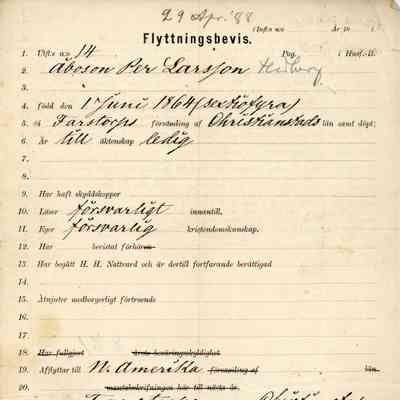 29 Apr. '88
(Inft. n:o År 18
Flyttningsbevis.
1. Utft. n:o 14 Pag. i Husf.-B.
2. Åboson Per Larsson Hedberg
3.
4. född den 1 Juni 1864 (sextiofyra)
5. i Farstorps församling af Christianstads län samt döpt;
6. Är till äktenskap ledig
7.
8.
9. Har haft skyddskoppor
10. Läser försvarligt innantill.
11. Eger försvarlig kristendomskunskap.
12. Har bevistat förhören
13. Har begått H. H. Nattvard och är dertill fortfarande berättigad
14.
15. Åtnjuter medborgerligt förtroende
16.
17.
18. Har fullgjort årets beväringsskyldighet
19. Afflyttar till N. Amerika församling af län.
20. mantalsskrifningen här till nästa år.